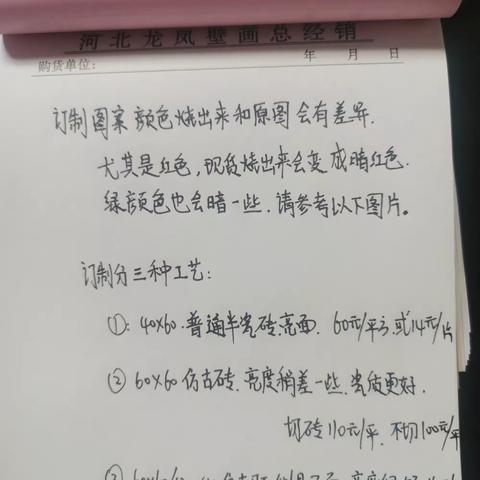 河北龙凤壁画总经销
购货单位: 年 月 日
订制图案颜色烧出来和原图会有差异.
尤其是红色,现货烧出来会变成暗红色.
绿颜色也会暗一些.请参考以下图片。
订制分三种工艺:
①: 40×60.普通半瓷砖.亮面. 60元/平方.或14元/片
② 60×60仿古砖.亮度稍差一些.瓷质更好.
切砖110元/平.不切100元/平